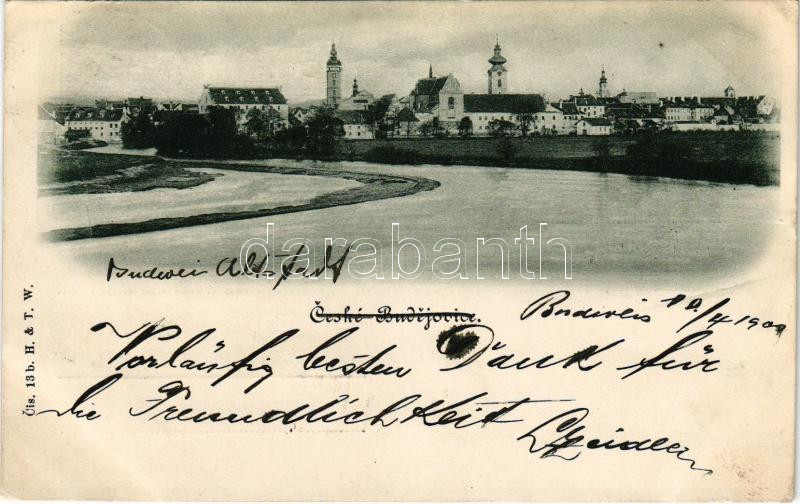 darabanth
Budweis Altstadt
České Budějovice.
Budweis 10/4 1900
Vorläufig besten Dank für
die Freundlichkeit
Čís. 13 b. H. & T. W.